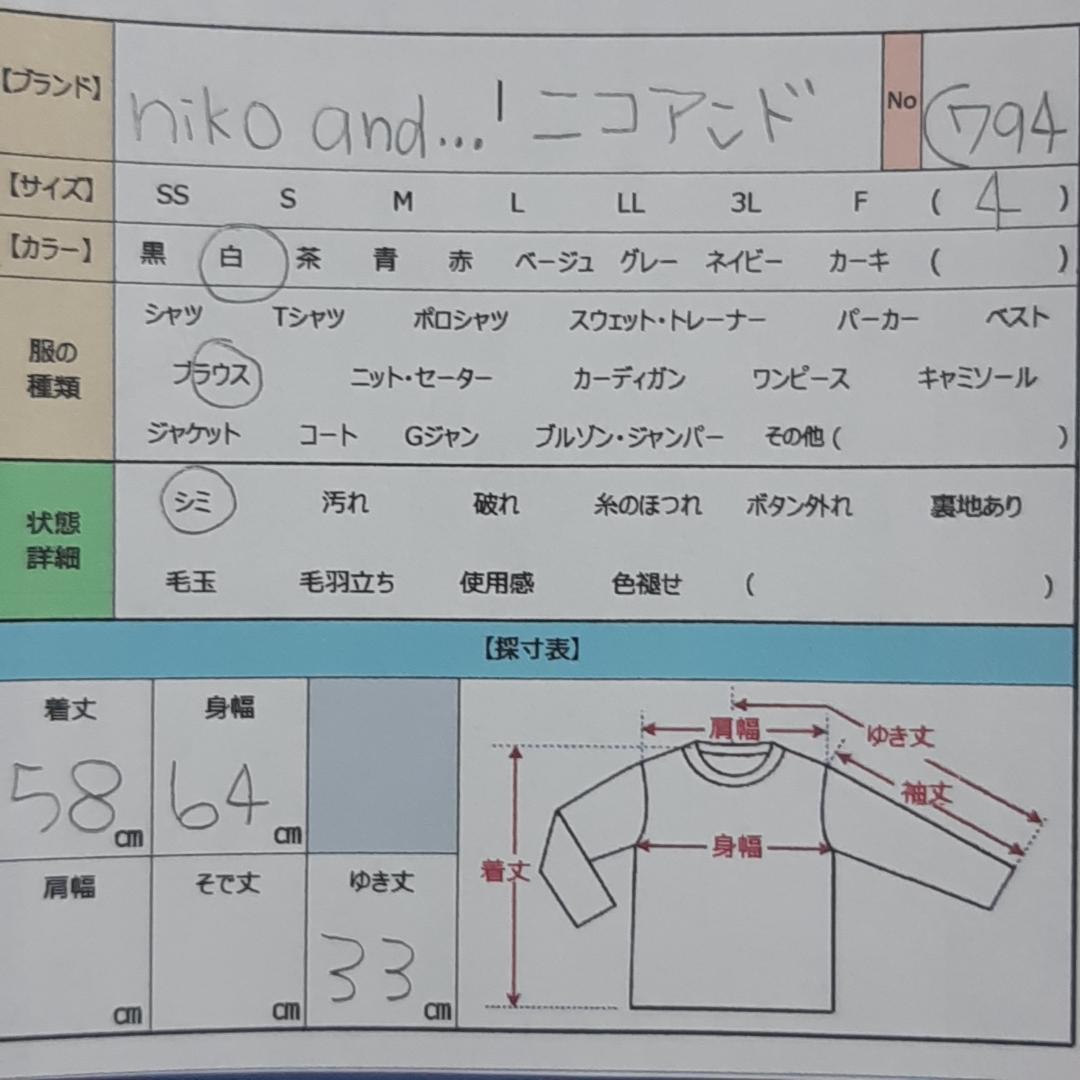 【ブランド】 niko and...' ニコアンド No 794
【サイズ】 SS S M L LL 3L F ( 4 )
【カラー】 黒 白 茶 青 赤 ベージュ グレー ネイビー カーキ ( )
服の種類
シャツ Tシャツ ポロシャツ スウェット・トレーナー パーカー ベスト
ブラウス ニット・セーター カーディガン ワンピース キャミソール
ジャケット コート Gジャン ブルゾン・ジャンパー その他 ( )
状態詳細
シミ 汚れ 破れ 糸のほつれ ボタン外れ 裏地あり
毛玉 毛羽立ち 使用感 色褪せ ( )
【採寸表】
着丈 身幅
58 cm 64 cm
肩幅 そで丈 ゆき丈
cm cm 33 cm
肩幅
ゆき丈
袖丈
身幅
着丈